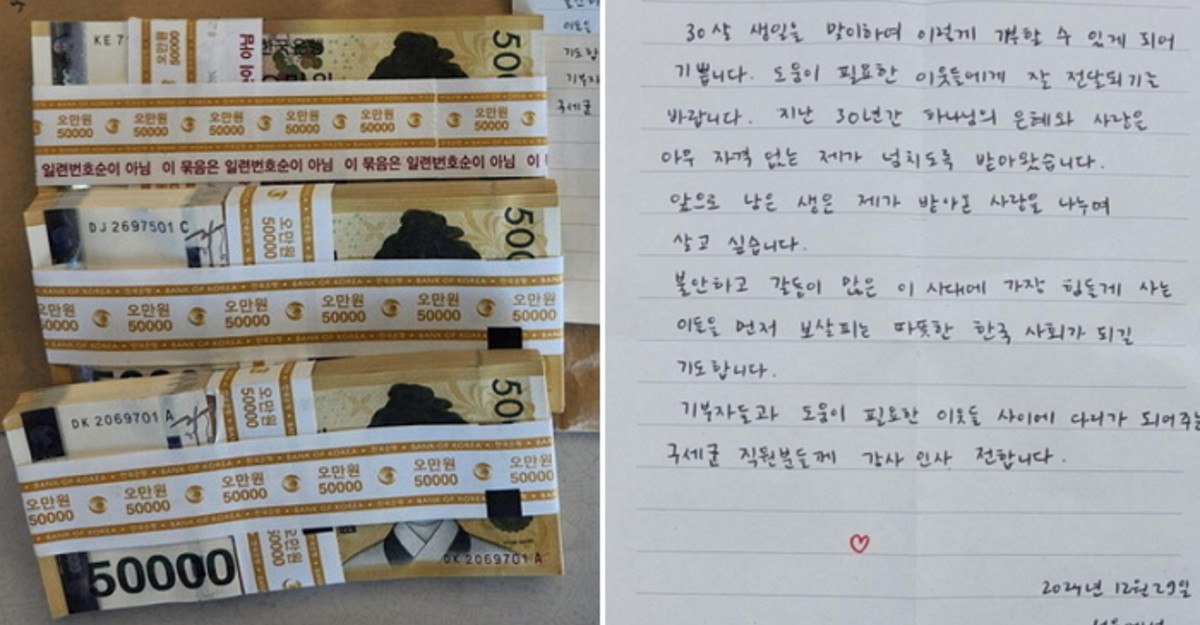 KE 7
50000
아님
500
이들을
기도합
기부자
구세군
BANK OF KOREA
오만원 오만원 오만원 오만원 오만원 오만원
50000 50000 50000 50000 50000 50000
일련번호순이 아님 이 묶음은 일련번호순이 아님 이 묶음은 일련번호순이 아님 이
DJ 2697501 C
오만원
50000
500
BANK OF KOREA • 한국은행
오만원 오만원 오만원 오만원 오만원 오만원
50000 50000 50000 50000 50000 50000
DK 2069701 A
오만원
50000
50
BANK OF KOREA • 한국은행
오만원 오만원 오만원 오만원 오만원
50000 50000 50000 50000 50000
50000
오만원
50000
DK 2069701 A
30살 생일을 맞이하여 이렇게 기부할 수 있게 되어
기쁩니다. 도움이 필요한 이웃들에게 잘 전달되기를
바랍니다. 지난 30년간 하나님의 은혜와 사랑을
아무 자격 없는 제가 넘치도록 받아왔습니다.
앞으로 남은 생은 제가 받아온 사랑을 나누며
살고 싶습니다.
불안하고 갈등이 많은 이 시대에 가장 힘들게 사는
이들을 먼저 보살피는 따뜻한 한국 사회가 되길
기도합니다.
기부자들과 도움이 필요한 이웃들 사이에 다리가 되어주는
구세군 직원분들께 감사 인사 전합니다.
2024년 12월 29일